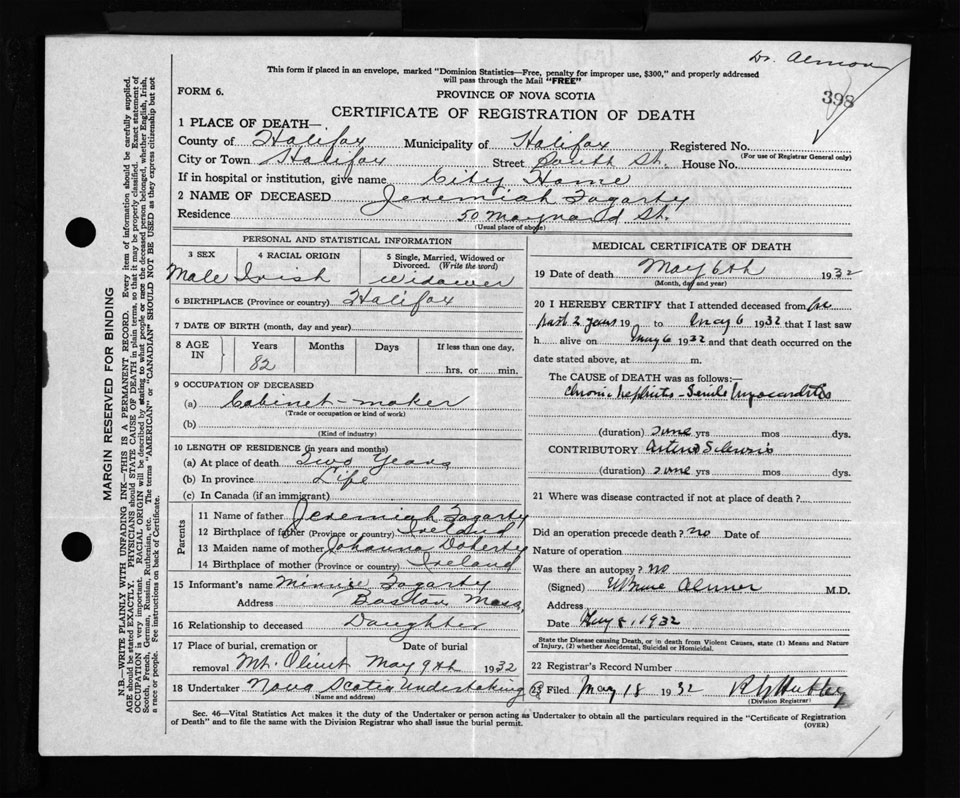 Dr. Almon
398
This form if placed in an envelope, marked "Dominion Statistics—Free, penalty for improper use, $300," and properly addressed
will pass through the Mail "FREE"
FORM 6.
PROVINCE OF NOVA SCOTIA
CERTIFICATE OF REGISTRATION OF DEATH
1 PLACE OF DEATH—
County of Halifax Municipality of Halifax Registered No.
(For use of Registrar General only)
City or Town Halifax Street South St. House No.
If in hospital or institution, give name City Home
2 NAME OF DECEASED Jeremiah Fogarty
Residence 50 Maynard St.
(Usual place of abode)
PERSONAL AND STATISTICAL INFORMATION
3 SEX 4 RACIAL ORIGIN 5 Single, Married, Widowed or
Divorced. (Write the word)
Male Irish Widower
6 BIRTHPLACE (Province or country) Halifax
7 DATE OF BIRTH (month, day and year)
8 AGE IN Years Months Days If less than one day,
82 hrs. or min.
9 OCCUPATION OF DECEASED
(a) Cabinet-maker
(Trade or occupation or kind of work)
(b)
(Kind of industry)
10 LENGTH OF RESIDENCE (in years and months)
(a) At place of death Two Years
(b) In province Life
(c) In Canada (if an immigrant)
Parents
11 Name of father Jeremiah Fogarty
12 Birthplace of father (Province or country) Ireland
13 Maiden name of mother Johanna Doherty
14 Birthplace of mother (Province or country) Ireland
15 Informant's name Minnie Fogarty
Address Boston Mass.
16 Relationship to deceased Daughter
17 Place of burial, cremation or Date of burial
removal Mt. Olivet May 9th 1932
18 Undertaker Nova Scotia Undertaking
(Name and address)
MEDICAL CERTIFICATE OF DEATH
19 Date of death May 6th 1932
(Month, day and year)
20 I HEREBY CERTIFY that I attended deceased from for
past 2 years 19 to May 6 1932 that I last saw
h alive on May 6 1932 and that death occurred on the
date stated above, at m.
The CAUSE of DEATH was as follows:—
Chronic Nephritis - Senile Myocarditis
(duration) some yrs mos dys.
CONTRIBUTORY Arterio Sclerosis
(duration) some yrs mos dys.
21 Where was disease contracted if not at place of death?
Did an operation precede death? no Date of
Nature of operation
Was there an autopsy? no
(Signed) Almon M.D.
Address
Date May 8, 1932
State the Disease causing Death, or in death from Violent Causes, state (1) Means and Nature
of Injury, (2) whether Accidental, Suicidal or Homicidal.
22 Registrar's Record Number
23 Filed May 18 1932
(Division Registrar)
Sec. 46—Vital Statistics Act makes it the duty of the Undertaker or person acting as Undertaker to obtain all the particulars required in the "Certificate of Registration
of Death" and to file the same with the Division Registrar who shall issue the burial permit.
(OVER)
MARGIN RESERVED FOR BINDING
N.B.—WRITE PLAINLY WITH UNFADING INK—THIS IS A PERMANENT RECORD. Every item of information should be carefully supplied.
AGE should be stated EXACTLY. PHYSICIANS should STATE CAUSE OF DEATH in plain terms, so that it may be properly classified. Exact statement of
OCCUPATION is very important. RACIAL ORIGIN will be described by stating to what people or race the deceased person belonged, whether English, Irish,
Scotch, French, German, Russian, Ruthenian, etc. The terms "AMERICAN" or "CANADIAN" SHOULD NOT BE USED as they express citizenship but not
a race or people. See instructions on back of Certificate.